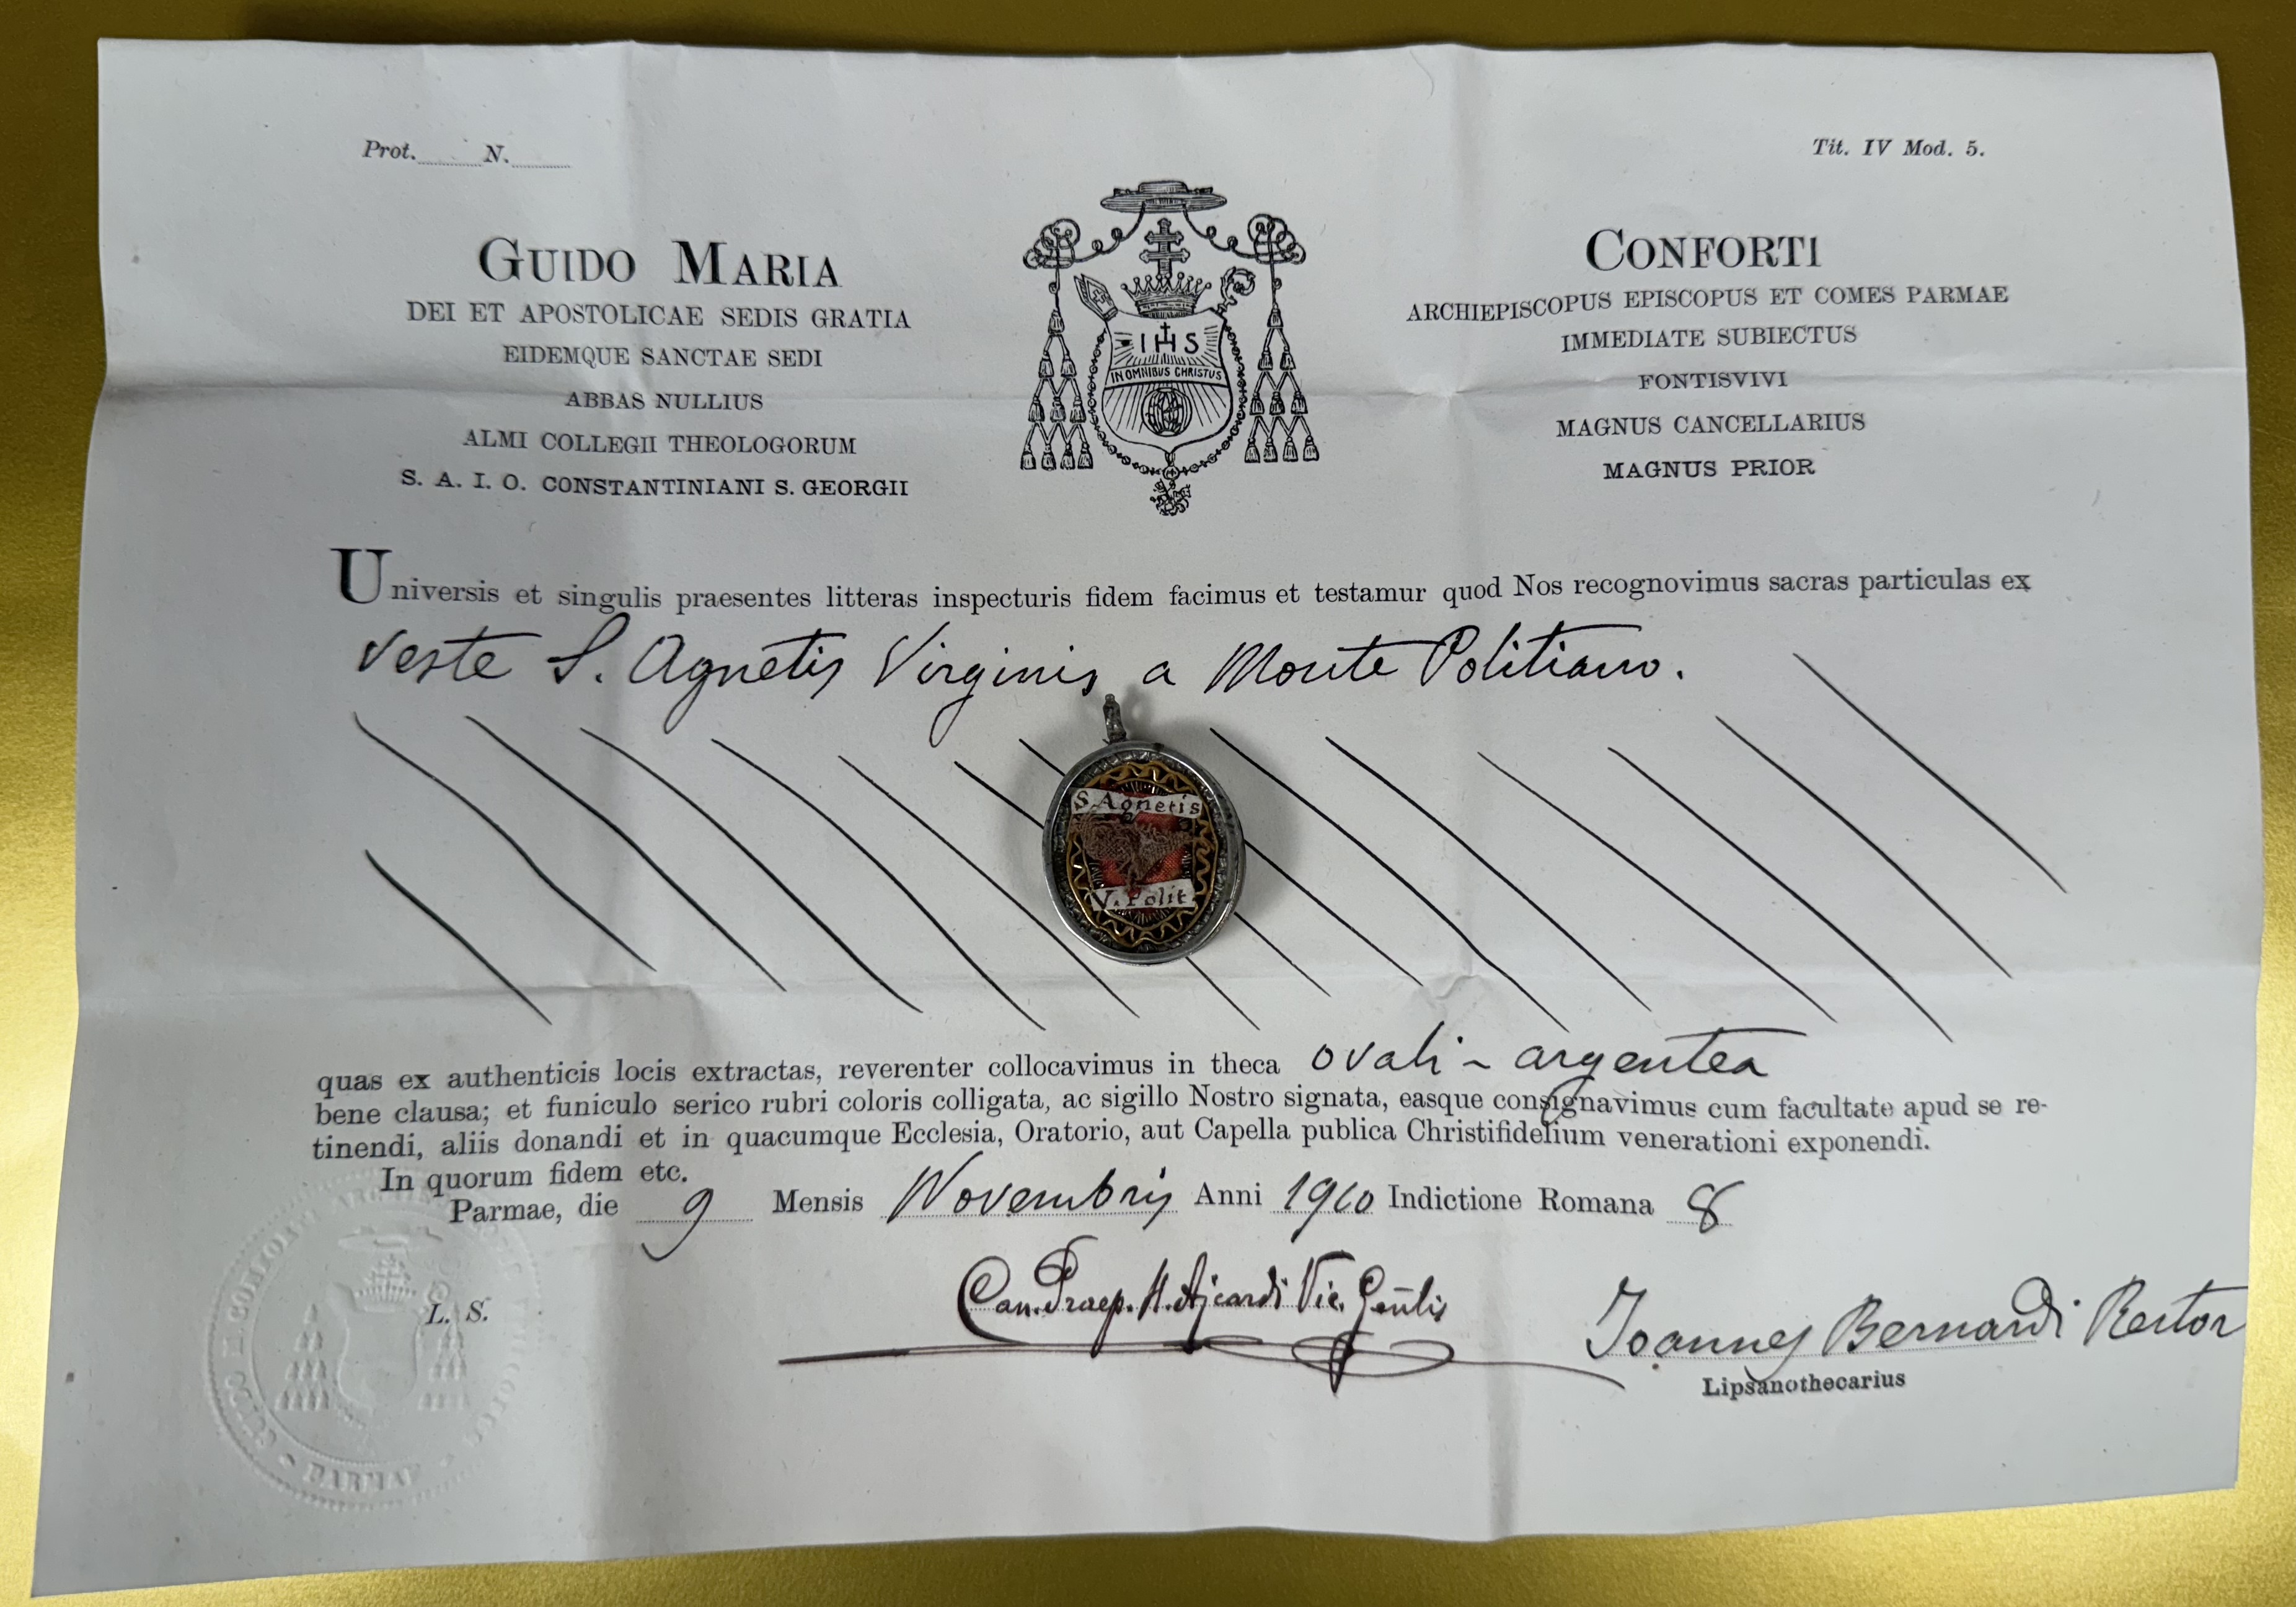 Prot. N.
Tit. IV Mod. 5.
GUIDO MARIA
DEI ET APOSTOLICAE SEDIS GRATIA
EIDEMQUE SANCTAE SEDI
ABBAS NULLIUS
ALMI COLLEGII THEOLOGORUM
S. A. I. O. CONSTANTINIANI S. GEORGII
IHS
IN OMNIBUS CHRISTUS
CONFORTI
ARCHIEPISCOPUS EPISCOPUS ET COMES PARMAE
IMMEDIATE SUBIECTUS
FONTISVIVI
MAGNUS CANCELLARIUS
MAGNUS PRIOR
Universis et singulis praesentes litteras inspecturis fidem facimus et testamur quod Nos recognovimus sacras particulas ex
veste S. Agnetis Virginis a Monte Politiano.
S. Agnetis
V. Polit.
quas ex authenticis locis extractas, reverenter collocavimus in theca ovali - argentea
bene clausa; et funiculo serico rubri coloris colligata, ac sigillo Nostro signata, easque consignavimus cum facultate apud se re-
tinendi, aliis donandi et in quacumque Ecclesia, Oratorio, aut Capella publica Christifidelium venerationi exponendi.
In quorum fidem etc.
Parmae, die 9 Mensis Novembris Anni 1910 Indictione Romana 8
L. S.
Can. Praep. A. Ajcardi Vic. Genlis
Joannes Bernardi Rector
Lipsanothecarius
GUIDO M. CONFORTI
PARMAE